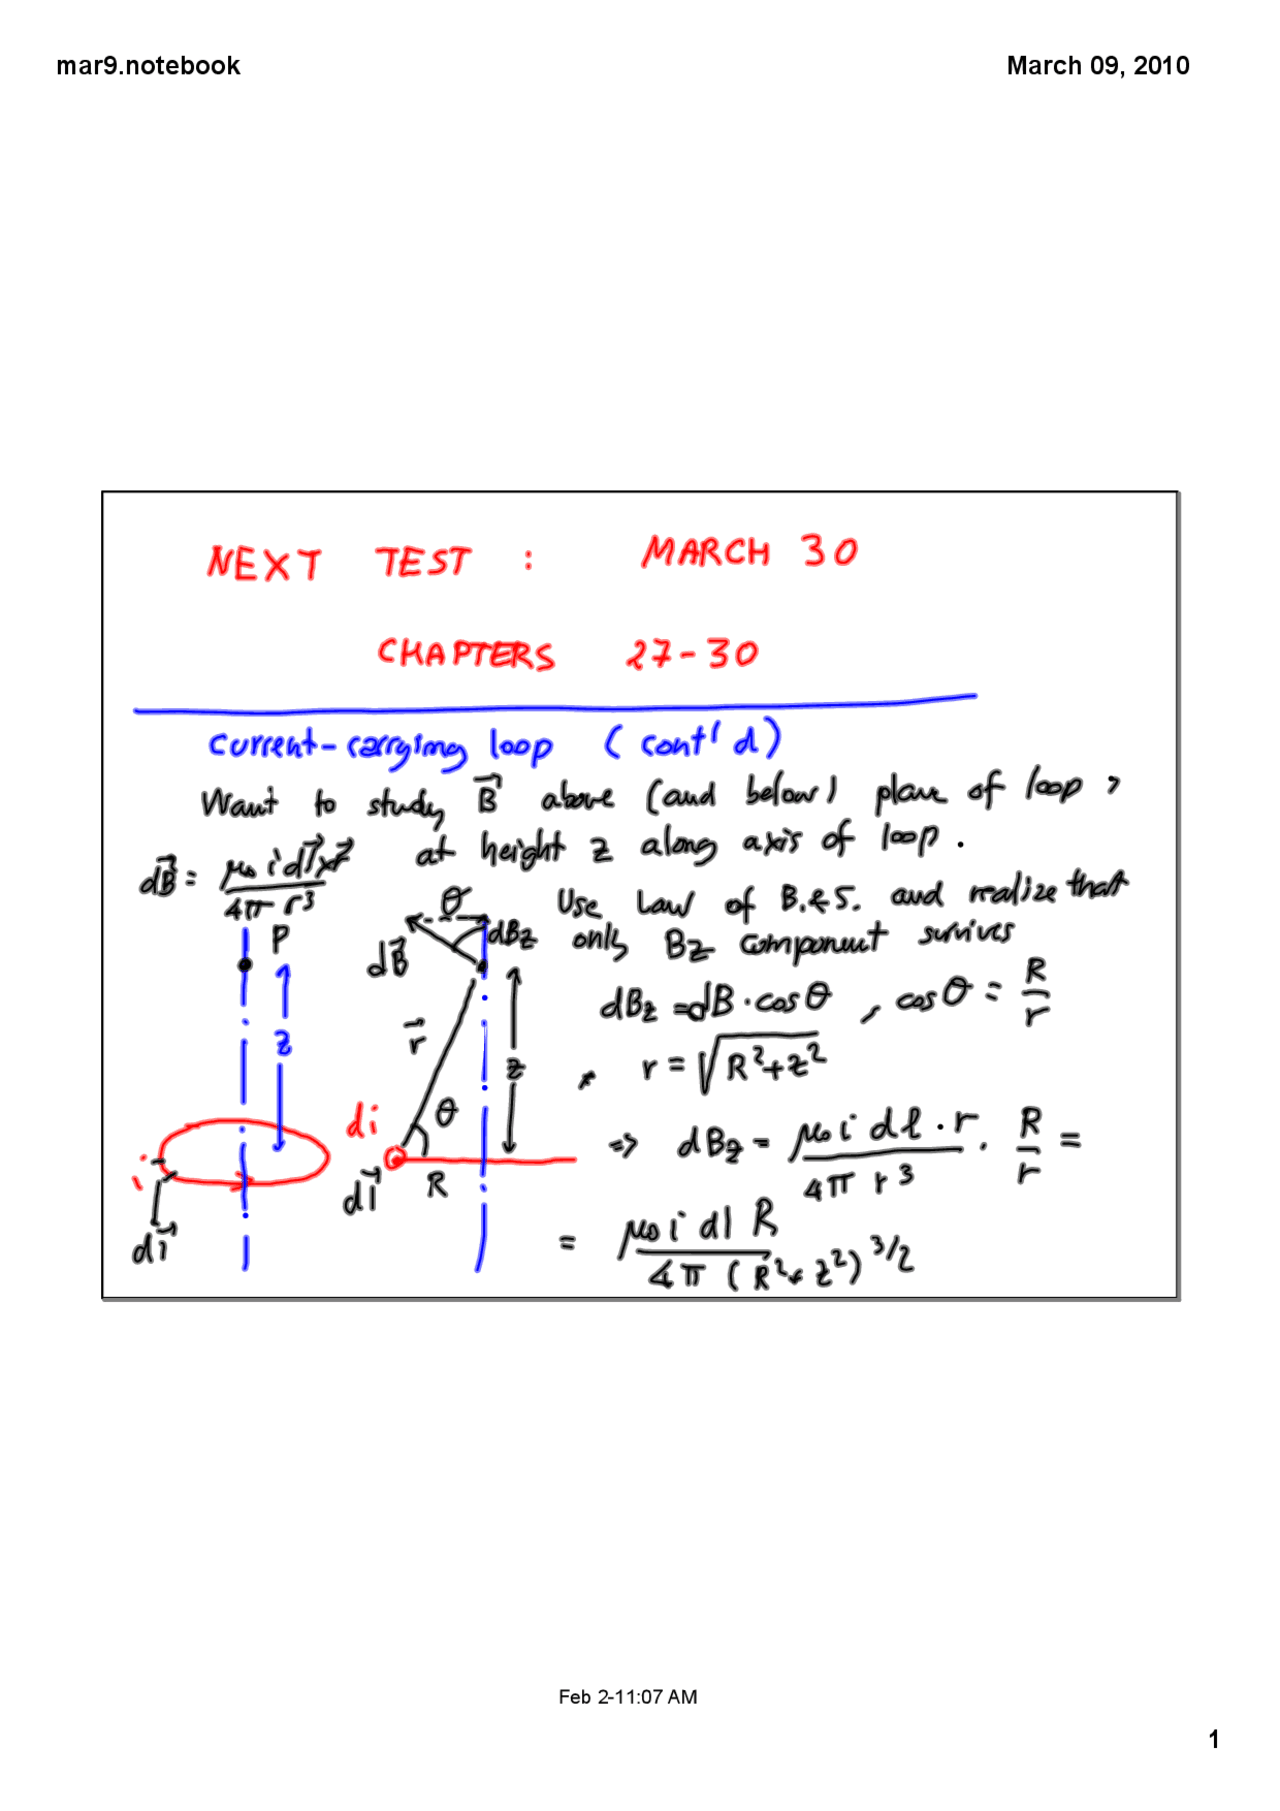 mar9.notebook
March 09, 2010
NEXT TEST : MARCH 30
CHAPTERS 27-30
Current-carrying loop (cont'd)
Want to study B⃗ above (and below) plane of loop,
at height z along axis of loop.
dB⃗ = μ₀ i dl⃗ x r⃗ / 4π r³
Use Law of B.&S. and realize that
only Bz component survives
P
z
i
dl⃗
θ
dBz
dB⃗
r⃗
z
θ
di
dl⃗
R
dBz = dB · cosθ , cosθ = R/r
r = √(R²+z²)
=> dBz = μ₀ i dl · r / 4π r³ · R/r =
= μ₀ i dl R / 4π (R²+z²)^3/2
Feb 2-11:07 AM
1